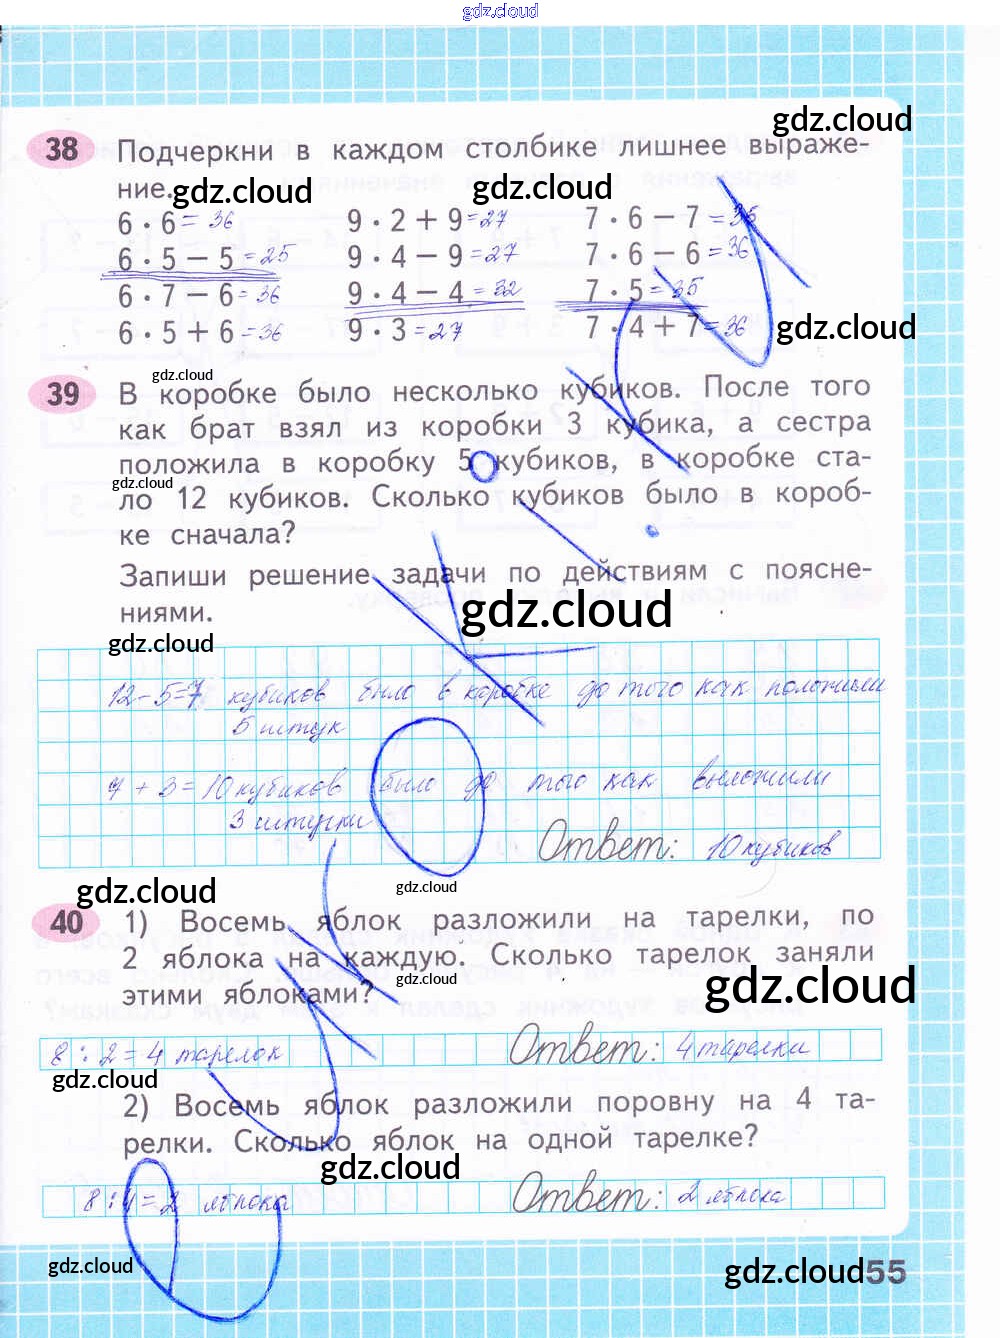 gdz.cloud
38 Подчеркни в каждом столбике лишнее выраже-
gdz.cloud
ние.
gdz.cloud gdz.cloud
6 · 6 = 36 9 · 2 + 9 = 27 7 · 6 − 7 = 35
6 · 5 − 5 = 25 9 · 4 − 9 = 27 7 · 6 − 6 = 36
6 · 7 − 6 = 36 9 · 4 − 4 = 32 7 · 5 = 35
6 · 5 + 6 = 36 9 · 3 = 27 7 · 4 + 7 = 36
gdz.cloud
gdz.cloud
39 В коробке было несколько кубиков. После того
как брат взял из коробки 3 кубика, а сестра
положила в коробку 5 кубиков, в коробке ста-
gdz.cloud
ло 12 кубиков. Сколько кубиков было в короб-
ке сначала?
Запиши решение задачи по действиям с поясне-
ниями.
gdz.cloud
gdz.cloud
12 − 5 = 7 кубиков было в коробке до того как положили
5 штук
7 + 3 = 10 кубиков было до того как выложили
3 штуки
Ответ: 10 кубиков
gdz.cloud gdz.cloud
40 1) Восемь яблок разложили на тарелки, по
2 яблока на каждую. Сколько тарелок заняли
gdz.cloud gdz.cloud
этими яблоками?
8 : 2 = 4 тарелок Ответ: 4 тарелки
gdz.cloud
2) Восемь яблок разложили поровну на 4 та-
релки. Сколько яблок на одной тарелке?
gdz.cloud
8 : 4 = 2 яблока Ответ: 2 яблока
gdz.cloud gdz.cloud 55
УРОКИ.КИ